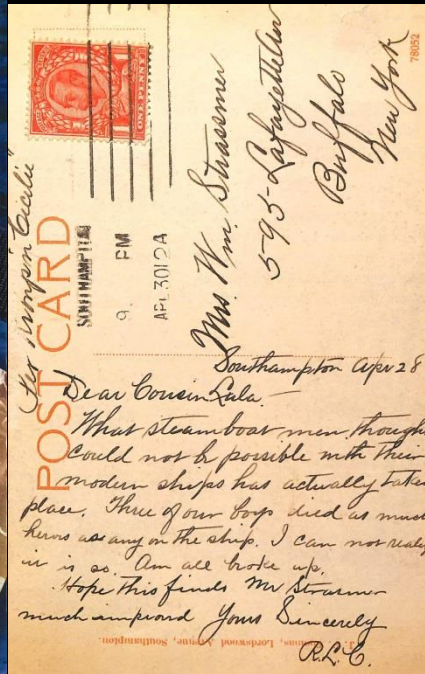 per Kronprin Cecilie
POST CARD
SOUTHAMPTON
9. PM
APL 30 12 A
PENNY ONE
Mrs Wm. Strassmer
595-Lafayette Av
Buffalo
New York
78052
Southampton Apr 28
Dear Cousin Lala.-
What steamboat men though
could not b possible with their
modern ships has actually take
place. Three of our boys died as much
heros as any on the ship. I can not realy
it is so. Am all broke up.
Hope this finds Mr Strasmer
much improved Yours Sincerely
R.L.C.
Lordswood Avenue, Southampton.